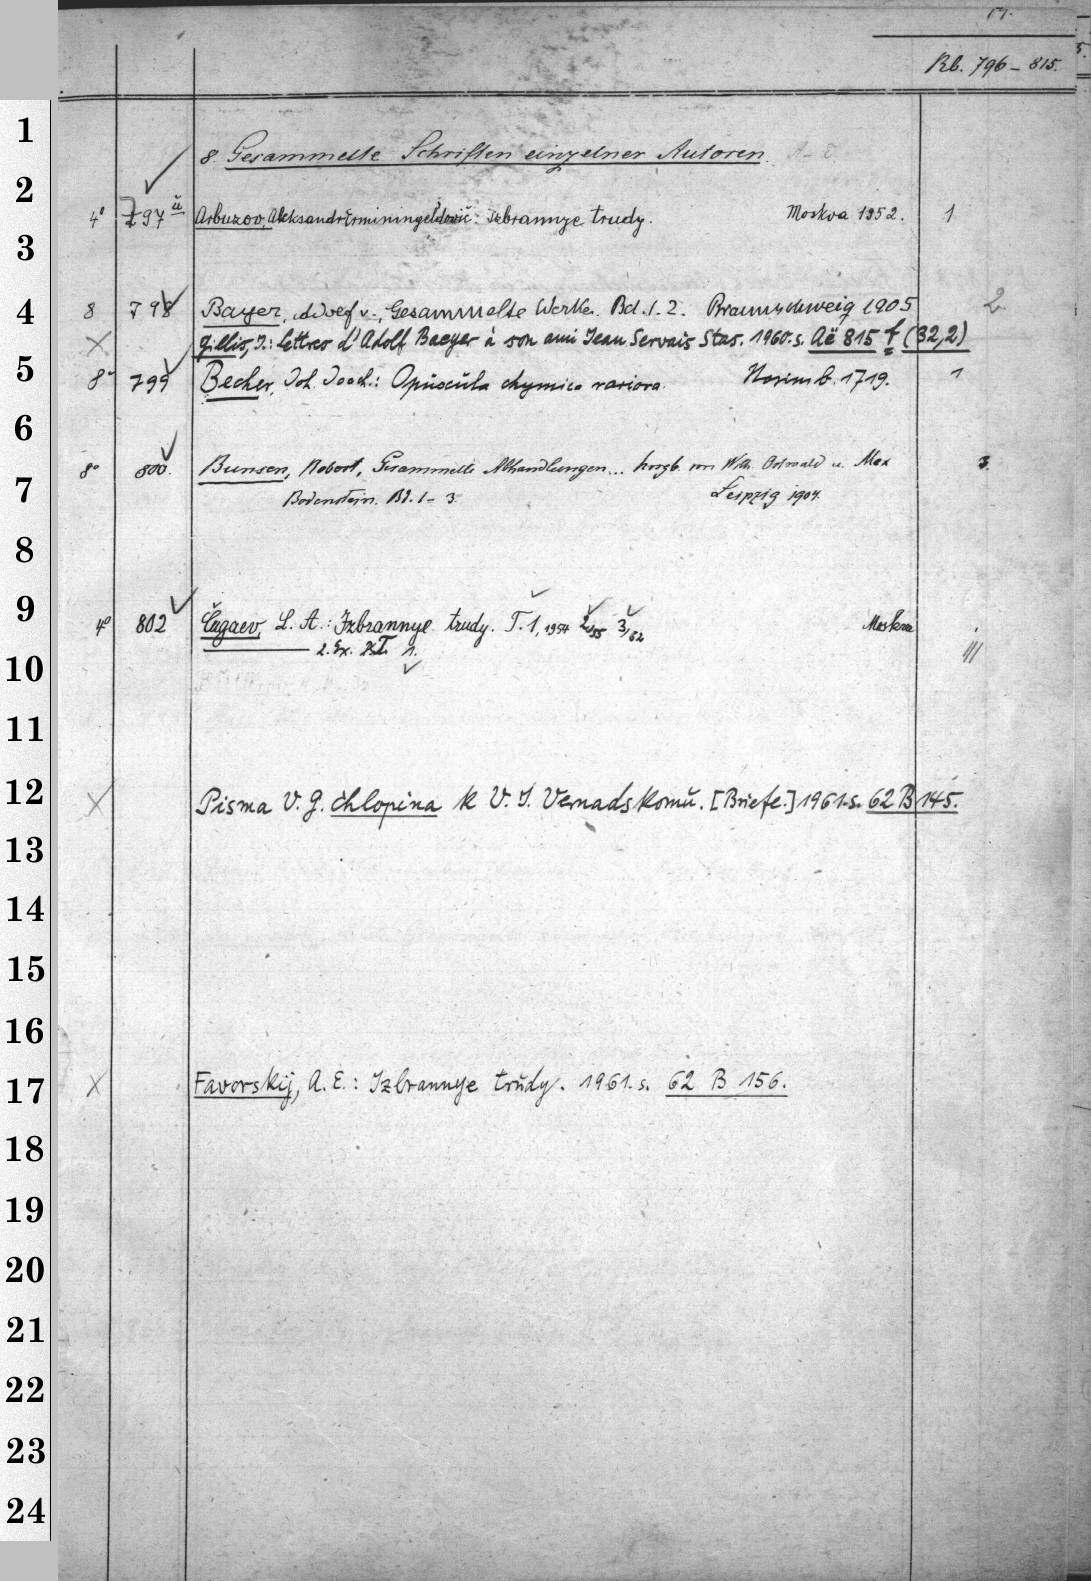 Rb. 796 – 815.
1
8. Gesammelte Schriften einzelner Autoren A – E
2
4° 797 ü Arbuzov, Aleksandr Erminingel'dovič: Izbrannye trudy. Moskva 1952. 1
3
4 8 798 Bayer, Adolf v., Gesammelte Werke. Bd. 1. 2. Braunschweig 1905 2
X Gillis, J.: Lettres d'Adolf Baeyer à son ami Jean Servais Stas. 1960. s. Aë 815 f (32,2)
5 8° 799 Becher, Joh. Joach.: Opuscula chymica rariora. Norimb. 1719. 1
6
8° 800. Bunsen, Robert, Gesammelte Abhandlungen... hrsgb. von Wilh. Ostwald u. Max 3.
7 Bodenstein. Bd. 1 – 3. Leipzig 1904.
8
9 4° 802 Čugaev, L. A.: Izbrannye trudy. T. 1, 1954 2,55 3,62 Moskva
2. Ex. T. 1.
10 III
11
12 X Pisma V. G. Chlopina k V. I. Vernadskomŭ. [Briefe.] 1961. s. 62 B 145.
13
14
15
16
17 X Favorskij, A. E.: Izbrannye trŭdy. 1961. s. 62 B 156.
18
19
20
21
22
23
24